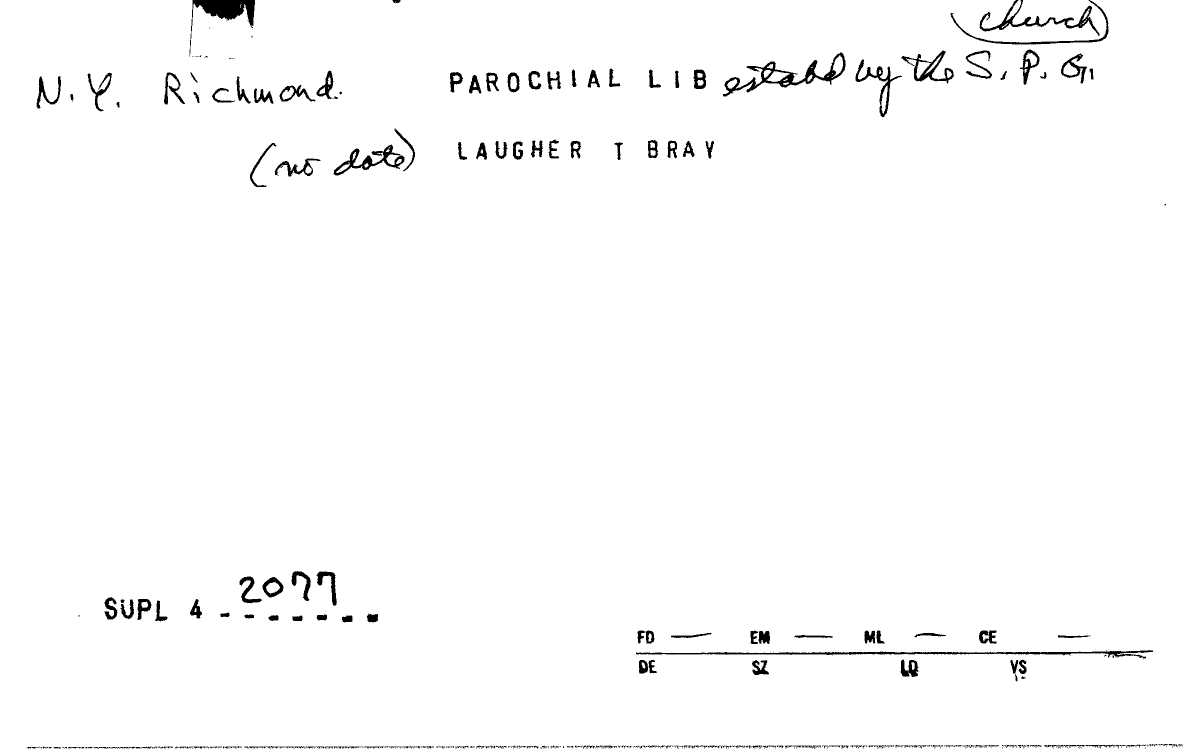 church
N.Y. Richmond. PAROCHIAL LIB estabd by the S. P. G.
(no date) LAUGHER T BRAY
SUPL 4 - 2077
FD — EM — ML — CE —
DE SZ LQ VS